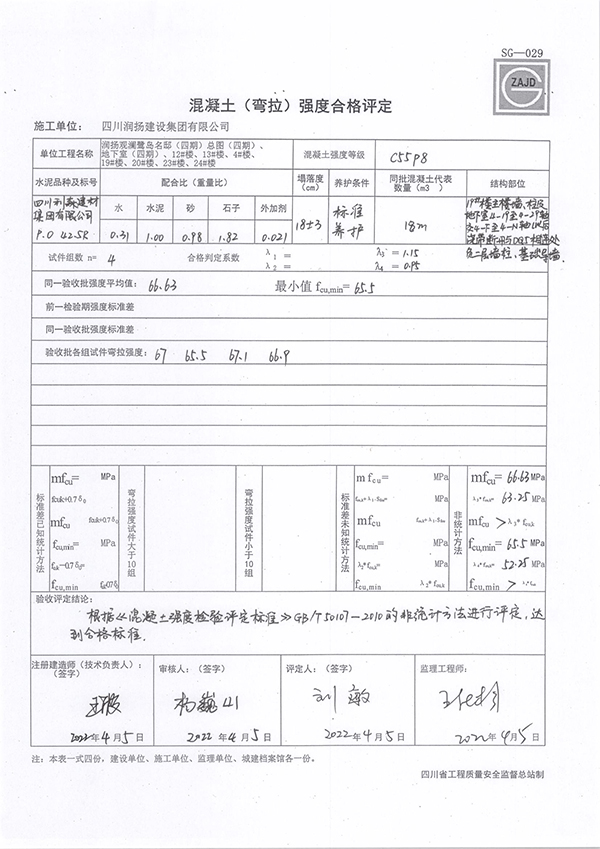 SG—029
ZAJD
混凝土（弯拉）强度合格评定
施工单位： 四川润扬建设集团有限公司
单位工程名称 润扬观澜鹭岛名邸（四期）总图（四期）、地下室（四期）、12#楼、13#楼、4#楼、19#楼、20#楼、23#楼、24#楼 混凝土强度等级 C55P8
水泥品种及标号 配合比（重量比） 塌落度（cm） 养护条件 同批混凝土代表数量（m3 ） 结构部位
四川利森建材集团有限公司 P.O 42.5R
水 水泥 砂 石子 外加剂
0.31 1.00 0.98 1.82 0.021
18±3 标准养护 18m
19#楼主楼墙、柱及
试件组数 n= 4 合格判定系数 λ1 = λ3 = 1.15
λ2 = λ4 = 0.95
同一验收批强度平均值： 66.63 最小值 fcu,min= 65.5
前一检验期强度标准差
同一验收批强度标准差
验收批各组试件弯拉强度： 67 65.5 67.1 66.9
标准差已知统计方法
mfcu= MPa
fcuk+0.7δ0
mfcu fcuk+0.7δ0
fcu,min= MPa
fcuk-0.7δ0=
fcu,min
弯拉强度试件大于10组
弯拉强度试件小于10组
标准差未知统计方法
mfcu= MPa
MPa
mfcu
fcu,min= MPa
MPa
fcu,min
非统计方法
mfcu= 66.63 MPa
63.25 MPa
mfcu >
fcu,min= 65.5 MPa
52.25 MPa
fcu,min >
验收评定结论：
根据《混凝土强度检验评定标准》GB/T50107-2010的非统计方法进行评定，达
到合格标准.
注册建造师（技术负责人）：（签字） 审核人：（签字） 评定人：（签字） 监理工程师：
刘敏
2022年4月5日 2022年4月5日 2022年4月5日 2022年4月5日
注：本表一式四份，建设单位、施工单位、监理单位、城建档案馆各一份。
四川省工程质量安全监督总站制